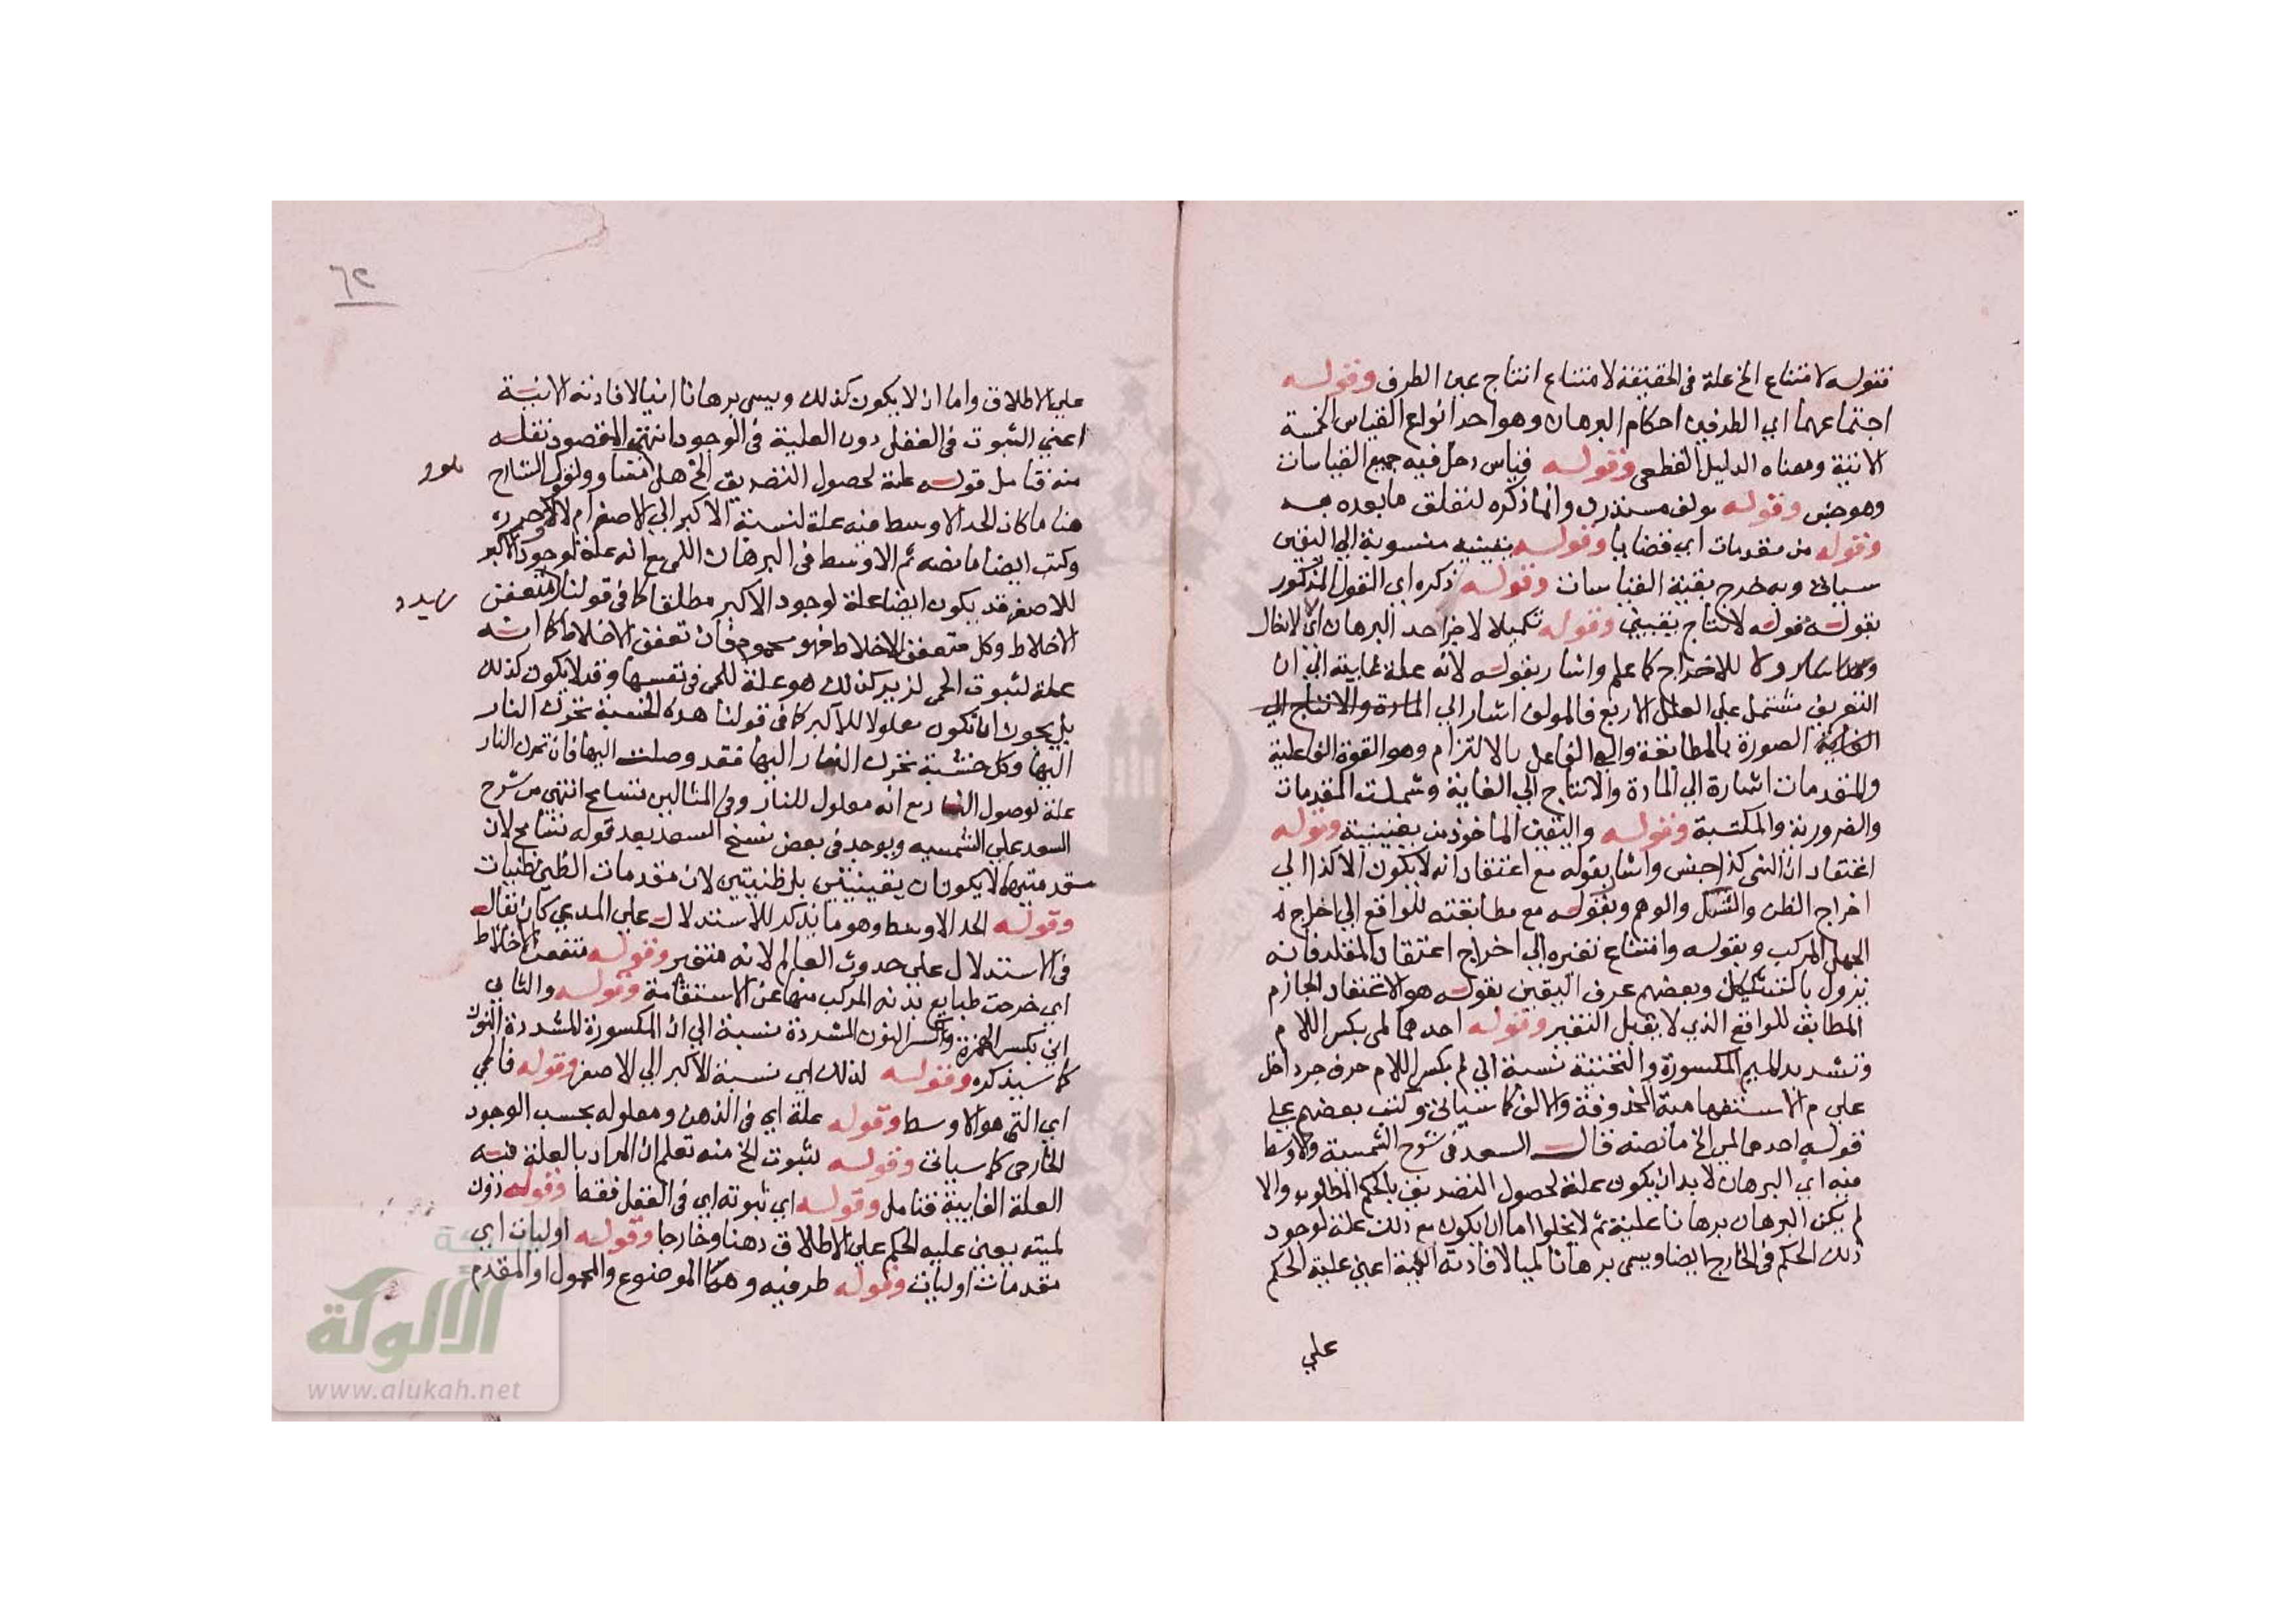 فقوله لامتناع الخ علة في الحقيقة لامتناع انتاج عين الطرف وقوله
اجتماعهما اي الطرفين احكام البرهان وهو احد انواع القياس الخمسة
الاتية ومعناه الدليل القطعي وقوله قياس دخل فيه جميع القياسات
وهو جنس وقوله مولف مستدرك وانما ذكره لتعلق ما بعده به
وقوله من مقدمات اي قضايا وقوله يقينيه منسوبة الى اليقين
سياتي وبه خرج بقية القياسات وقوله ذكره اي القول المذكور
بقوله قوله لانتاج يقيني وقوله تكميلا لاجزا حد البرهان اي لادخال
ولا للاخراج كما علم واشار بقوله لانه علة غايية الي ان
التعريف مشتمل علي العلل الاربع فالمولف اشار الي المادة والانتاج الي
الصورة بالمطابقة والي الفاعل بالالتزام وهو القوة الفاعلية
والمقدمات اشارة الي المادة والانتاج الي الغاية وشملت المقدمات
والضرورية والمكتسبة وقوله واليقين الماخوذ من يقينية وقوله
اعتقاد ان الشي كذا جنس واشار بقوله مع اعتقاد انه لا يكون الا كذا الي
اخراج الظن والشك والوهم وبقوله مع مطابقته للواقع الي اخراج
الجهل المركب وبقوله وامتناع تغيره الي اخراج اعتقاد المقلد فانه
يزول بالتشكيك وبعضهم عرف اليقين بقوله هو الاعتقاد الجازم
المطابق للواقع الذي لا يقبل التغير وقوله احدهما لمي بكسر اللام
وتشديد الميم المكسورة والتحتية نسبة الي لم بكسر اللام حرف جر داخل
علي م الاستفهامية المحذوفة والالف كما سياتي وكتب بعضهم علي
قوله احدهما لمي الخ ما نصه قال السعد في شرح الشمسية والاوسط
منه اي البرهان لا بد ان يكون علة لحصول التصديق بالحكم المطلوب والا
لم يكن البرهان برهانا عليه ثم لا يخلوا اما ان يكون مع ذلك علة لوجود
ذلك الحكم في الخارج ايضا ويسمي برهانا لميا لافادته اللمية اعني علية الحكم
علي
٦٢
علي الاطلاق واما ان لا يكون كذلك ويسمي برهانا انيا لافادته الانية
اعني الثبوت في العقل دون العلية في الوجود انتهي المقصود نقله
منه فتامل قوله علة لحصول التصديق الخ هل الشارح
هنا ما كان الحد الاوسط منه علة لنسبة الاكبر الي الاصغر ام لا حرره
وكتب ايضا ما نصه ثم الاوسط في البرهان اللمي مع انه علة لوجود الاكبر
للاصغر قد يكون ايضا علة لوجود الاكبر مطلقا كما في قولنا متعفن
الاخلاط وكل متعفن الاخلاط فهو محموم فان تعفن الاخلاط كما انه
علة لثبوت الحمي لزيد كذلك هو علة للحمي في نفسها وقد لا يكون كذلك
بل يجوز ان يكون معلولا للاكبر كما في قولنا هذه الخشبة تحرك النار
اليها وكل خشبة تحرك النار اليها فقد وصلت اليها فان تحرك النار
علة لوصول النار مع انه معلول للنار وفي المثالين تسامح انتهي من شرح
السعد علي الشمسيه ويوجد في بعض نسخ السعد بعد قوله تسامح لان
مقدمتيهما لا يكونان يقينيتين بل ظنيتين لان مقدمات الظني ظنيات
وقوله الحد الاوسط وهو ما يذكر للاستدلال علي المدعي كان يقال
في الاستدلال علي حدوث العالم لانه متغير وقوله متعفن الاخلاط
اي خرجت طبايع بدنه المركب منها عن الاستقامة وقوله والثاني
اني بكسر الهمزة وكسر النون المشددة نسبة الي ان المكسورة المشددة النون
كما سيذكره وقوله لذلك اي نسبة الاكبر الي الاصغر وقوله فالمي
اي التي هو الاوسط وقوله علة اي في الذهن ومعلوله بحسب الوجود
الخارجي كما سياتي وقوله لثبوت الخ منه تعلم ان المراد بالعلة فيه
العلة الغايية فتامل وقوله اي ثبوته اي في العقل فقط وقوله دون
لميته يعني علية الحكم علي الاطلاق ذهنا وخارجا وقوله اوليات اي
مقدمات اوليات وقوله طرفيه وهما الموضوع والمحمول او المقدم
الألوكة
www.alukah.net